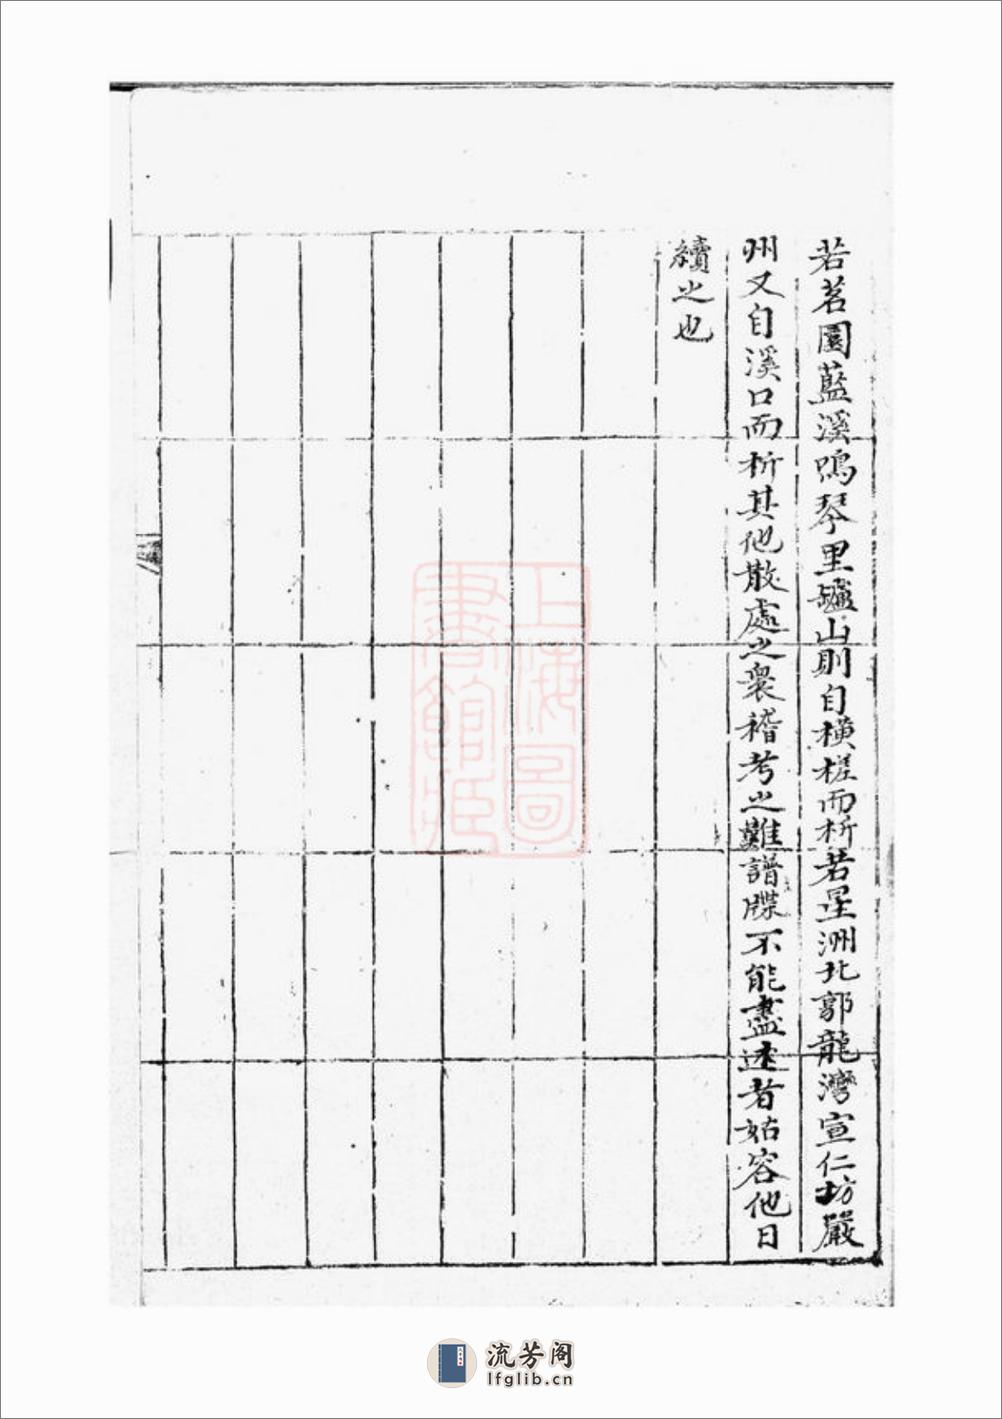 若茗園藍溪鳴琴里罏山則自橫槎而析若星洲北郭龍灣宣仁坊嚴
州又自溪口而析其他散處之衆稽考之難譜牒不能盡述者姑容他日
續之也
上海圖書館藏
流芳阁
lfglib.cn